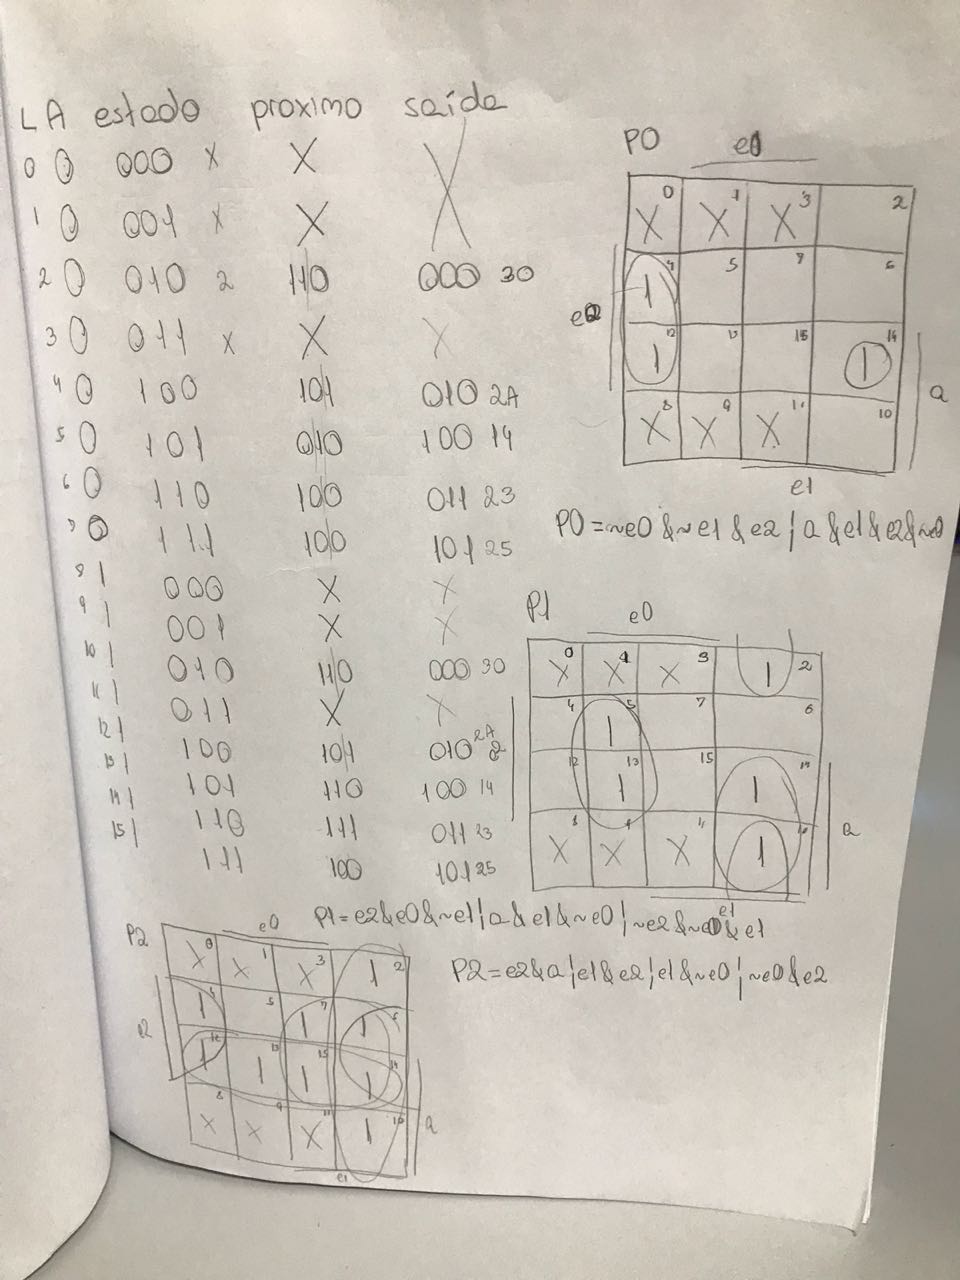 L A estado proximo saída
0 0 000 x X X
1 0 001 x X
2 0 010 2 110 000 30
3 0 011 x X X
4 0 100 101 010 2A
5 0 101 010 100 14
6 0 110 100 011 23
7 0 111 100 101 25
8 1 000 X X
9 1 001 X X
10 1 010 110 000 30
11 1 011 X X
12 1 100 101 010 2A
13 1 101 110 100 14
14 1 110 111 011 23
15 1 111 100 101 25
P0
e0
X 0 X 1 X 3 2
e2
1 4 5 7 6
1 12 13 15 1 14
a
X 8 X 9 X 11 10
e1
P0 = ~e0 & ~e1 & e2 | a & e1 & e2 & ~e0
P1
e0
X 0 X 1 X 3 1 2
4 1 5 7 6
12 1 13 15 1 14
a
X 8 X 9 X 11 1 10
e1
P1 = e2 & e0 & ~e1 | a & e1 & ~e0 | ~e2 & ~e0 & e1
P2
e0
X 0 X 1 X 3 1 2
e2
1 4 5 1 7 1 6
1 12 1 13 1 15 1 14
a
X 8 X 9 X 11 1 10
e1
P2 = e2 & a | e1 & e2 | e1 & ~e0 | ~e0 & e2